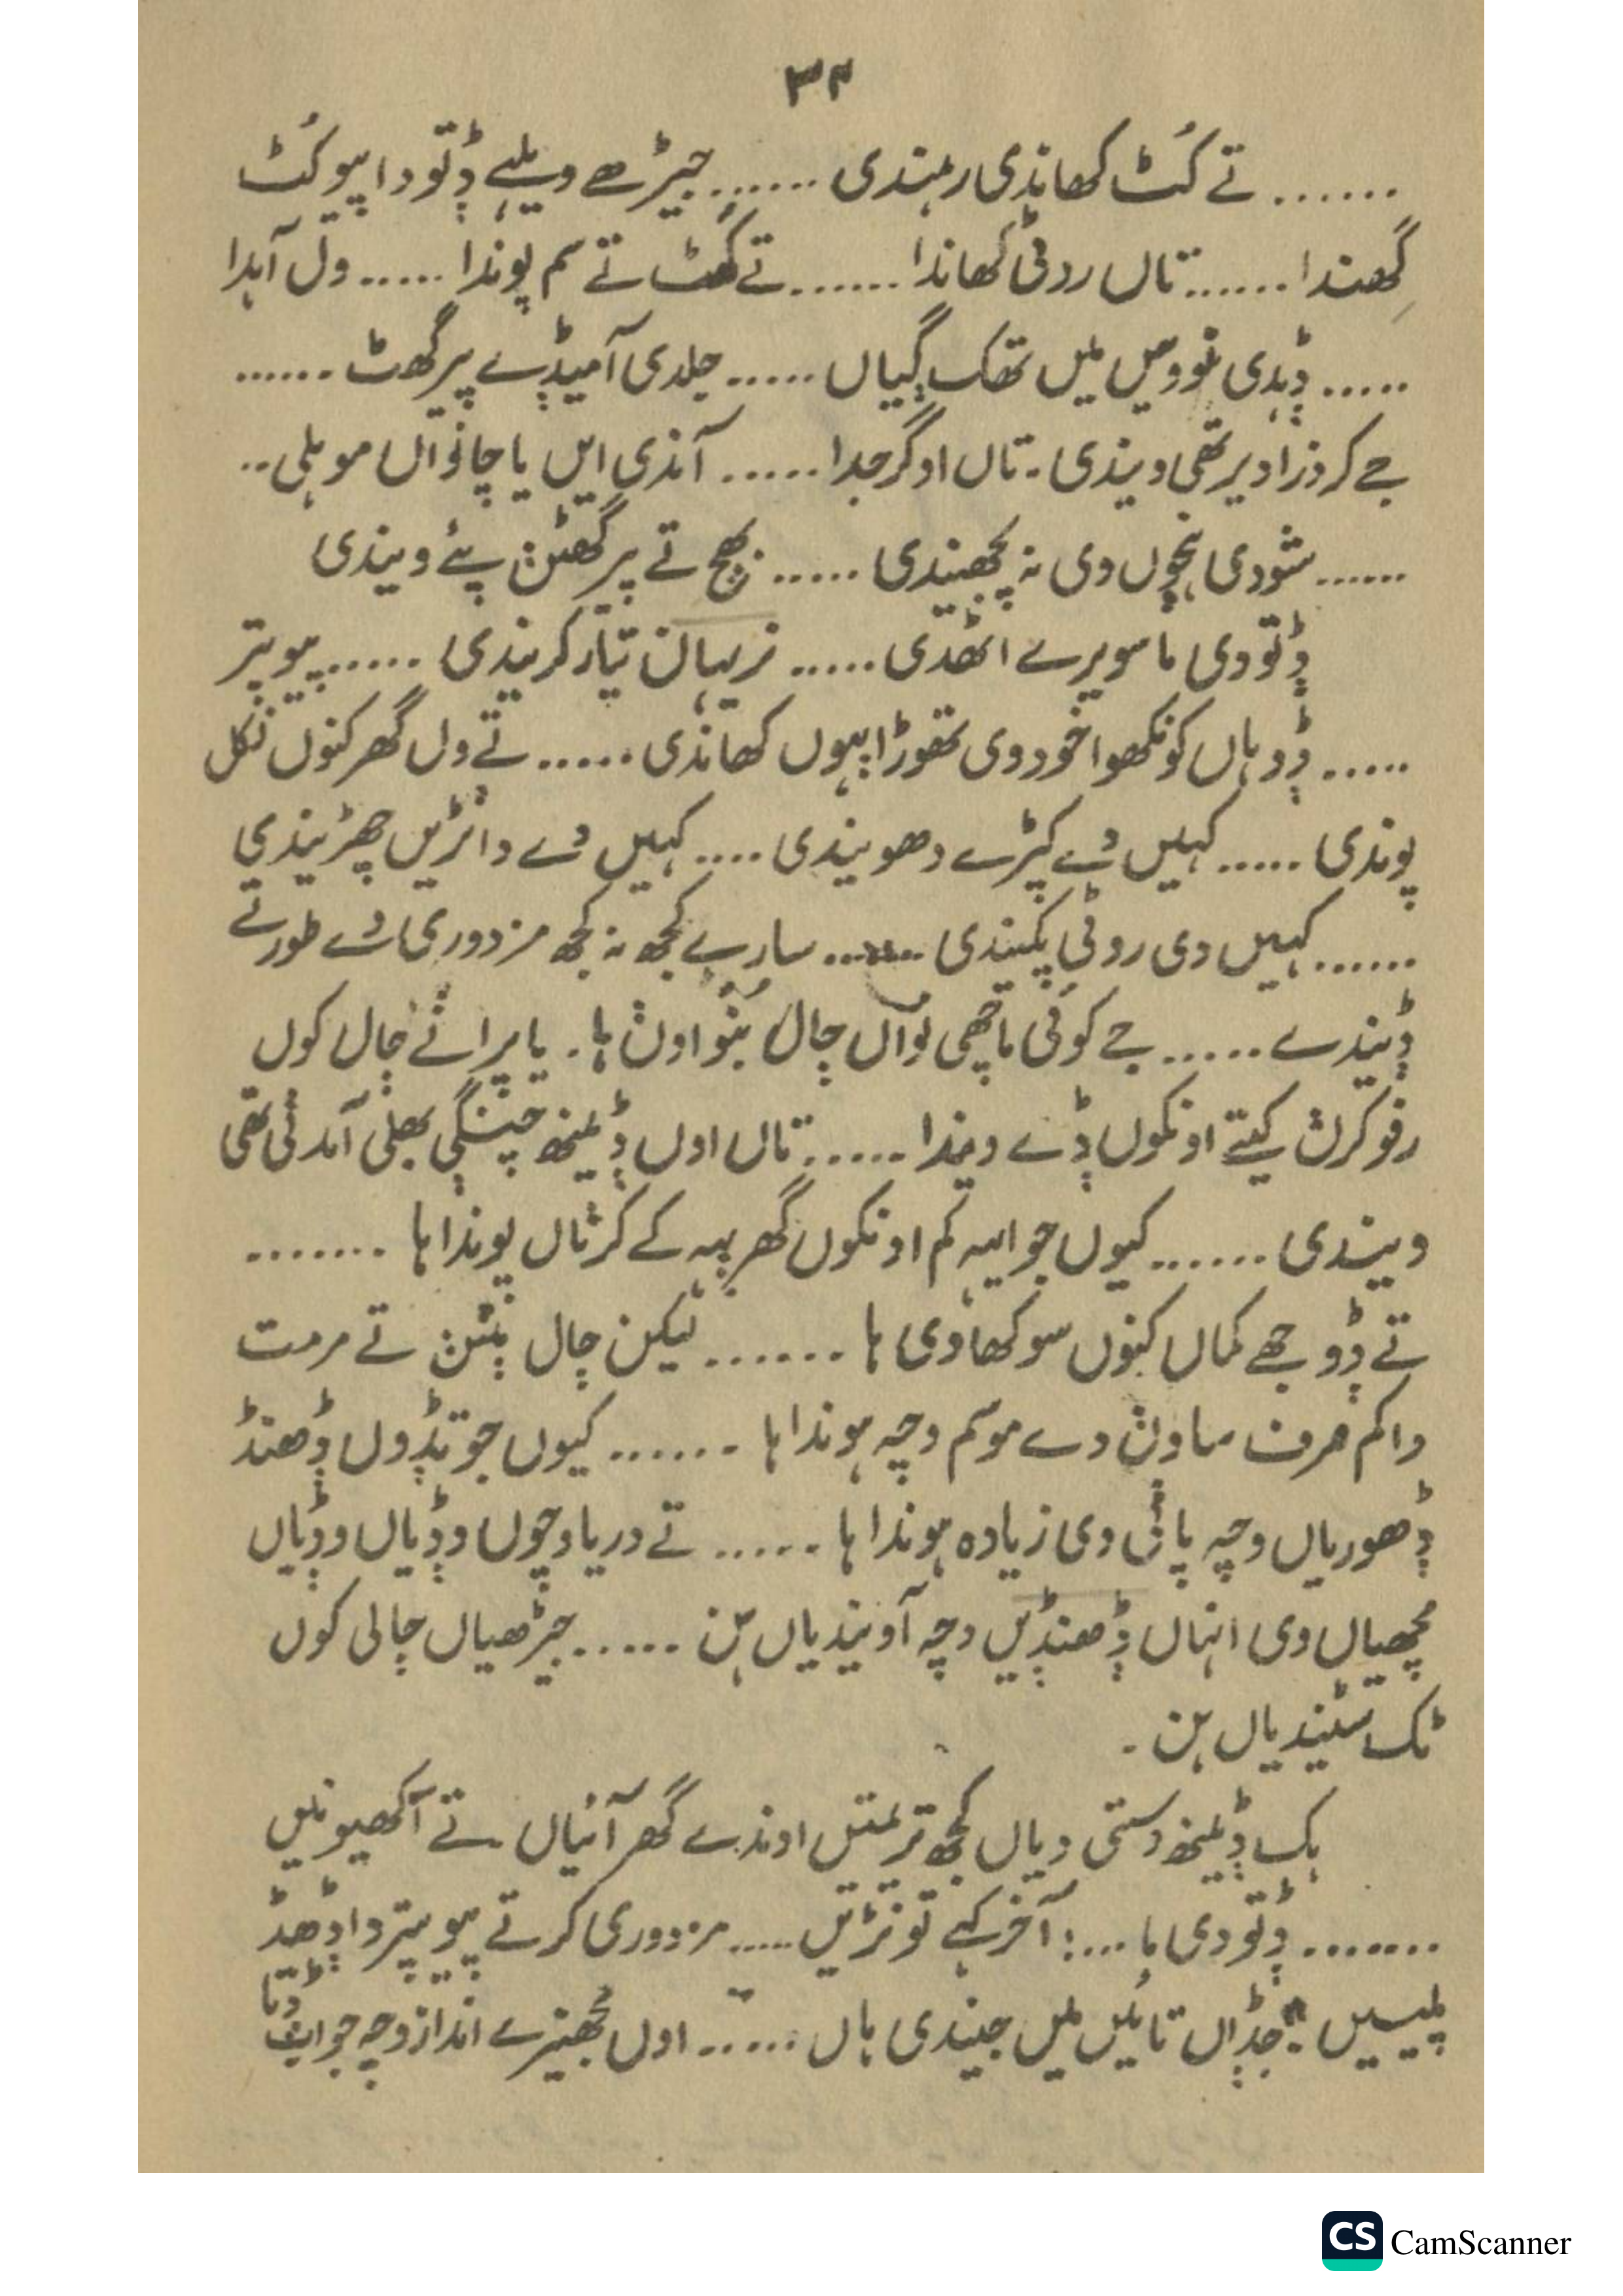 ۳۴
...... تے کُٹ کھاندی رہندی ...... جیڑھے ویلہے ݙتو دا پیو کُٹ
گِھندا ...... تاں روٹی کھاندا ...... تے کھٹ تے سم پوندا ...... ول آہدا
..... ݙہدی نوویں میں تھک ڳیاں ..... جلدی آ میݙے پیر گھٹ ......
جے کر ذرا دیر تھی ویندی۔ تاں او گرجدا ...... آندی ایں یا چانواں موہلی ..
...... شودی ہنجوں وی نہ پُجھیندی ..... بھج تے پیر گھٹݨ پئے ویندی
ݙتو دی ما سویرے اٹھدی ..... نریہان تیار کریندی ...... پیو پتر
..... ݙوہاں کوں کھوا خود وی تھوڑا بہوں کھاندی ...... تے ول گھر کنوں نکل
پوندی ...... کہیں دے کپڑے دھویندی .... کہیں دے دانڑیں چھڑیندی
...... کہیں دی روٹی پکیندی ...... سارے کجھ نہ کجھ مزدوری دے طور تے
ݙیندے ...... جے کوئی ماچھی نواں ڄال بݨواوݨ ہا۔ یا پراݨے ڄال کوں
رفو کرݨ کیتے اونکوں ݙے ویندا ...... تاں اوں ݙینھ چنگی بھلی آمدنی تھی
ویندی ...... کیوں جو ایہہ کم اونکوں گھر بہہ کے کرݨاں پوندا ہا .......
تے ݙوجھے کماں کنوں سوکھا وی ہا ...... لیکن ڄال بݨݨ تے مرمت
دا کم صرف ساوݨ دے موسم وچہ ہوندا ہا ...... کیوں جو تݙوں ݙھنڈ
ݙھوریاں وچہ پاݨی وی زیادہ ہوندا ہا ..... تے دریا وچوں وݙیاں وݙیاں
مچھیاں وی انہاں ݙھنڈیں وچہ آ ویندیاں ہن ..... جیڑھیاں ڄالی کوں
ٹک سٹیندیاں ہن۔
ہک ݙینھ وستی دیاں کجھ تریمتیں اوندے گھر آئیاں تے آکھیو نیں
....... ݙتو دی ما ...! آخر کہے توݨیں ..... مزدوری کر تے پیو پتر دا ݙھڈ
پلیسیں؟ جݙاں تائیں میں جیندی ہاں ..... اوں مُجھیرے انداز وچہ جواب ݙتا